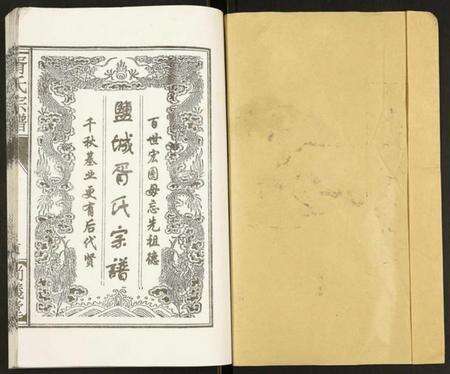 百世宏图毋忘先祖德
鹽城胥氏宗譜
千秋基业更有后代贤
胥氏宗譜